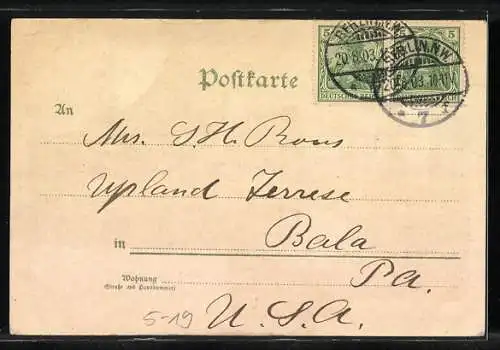 5 5
BERLIN N.W.
20.8.03.10-11
BERLIN.N.W.
7
DEUTSCHES REICH
Postkarte
An
Mrs. S. H.
Upland Terrese
in Bala
Wohnung
(Straße und Hausnummer)
Pa.
5-19
U.S.A.